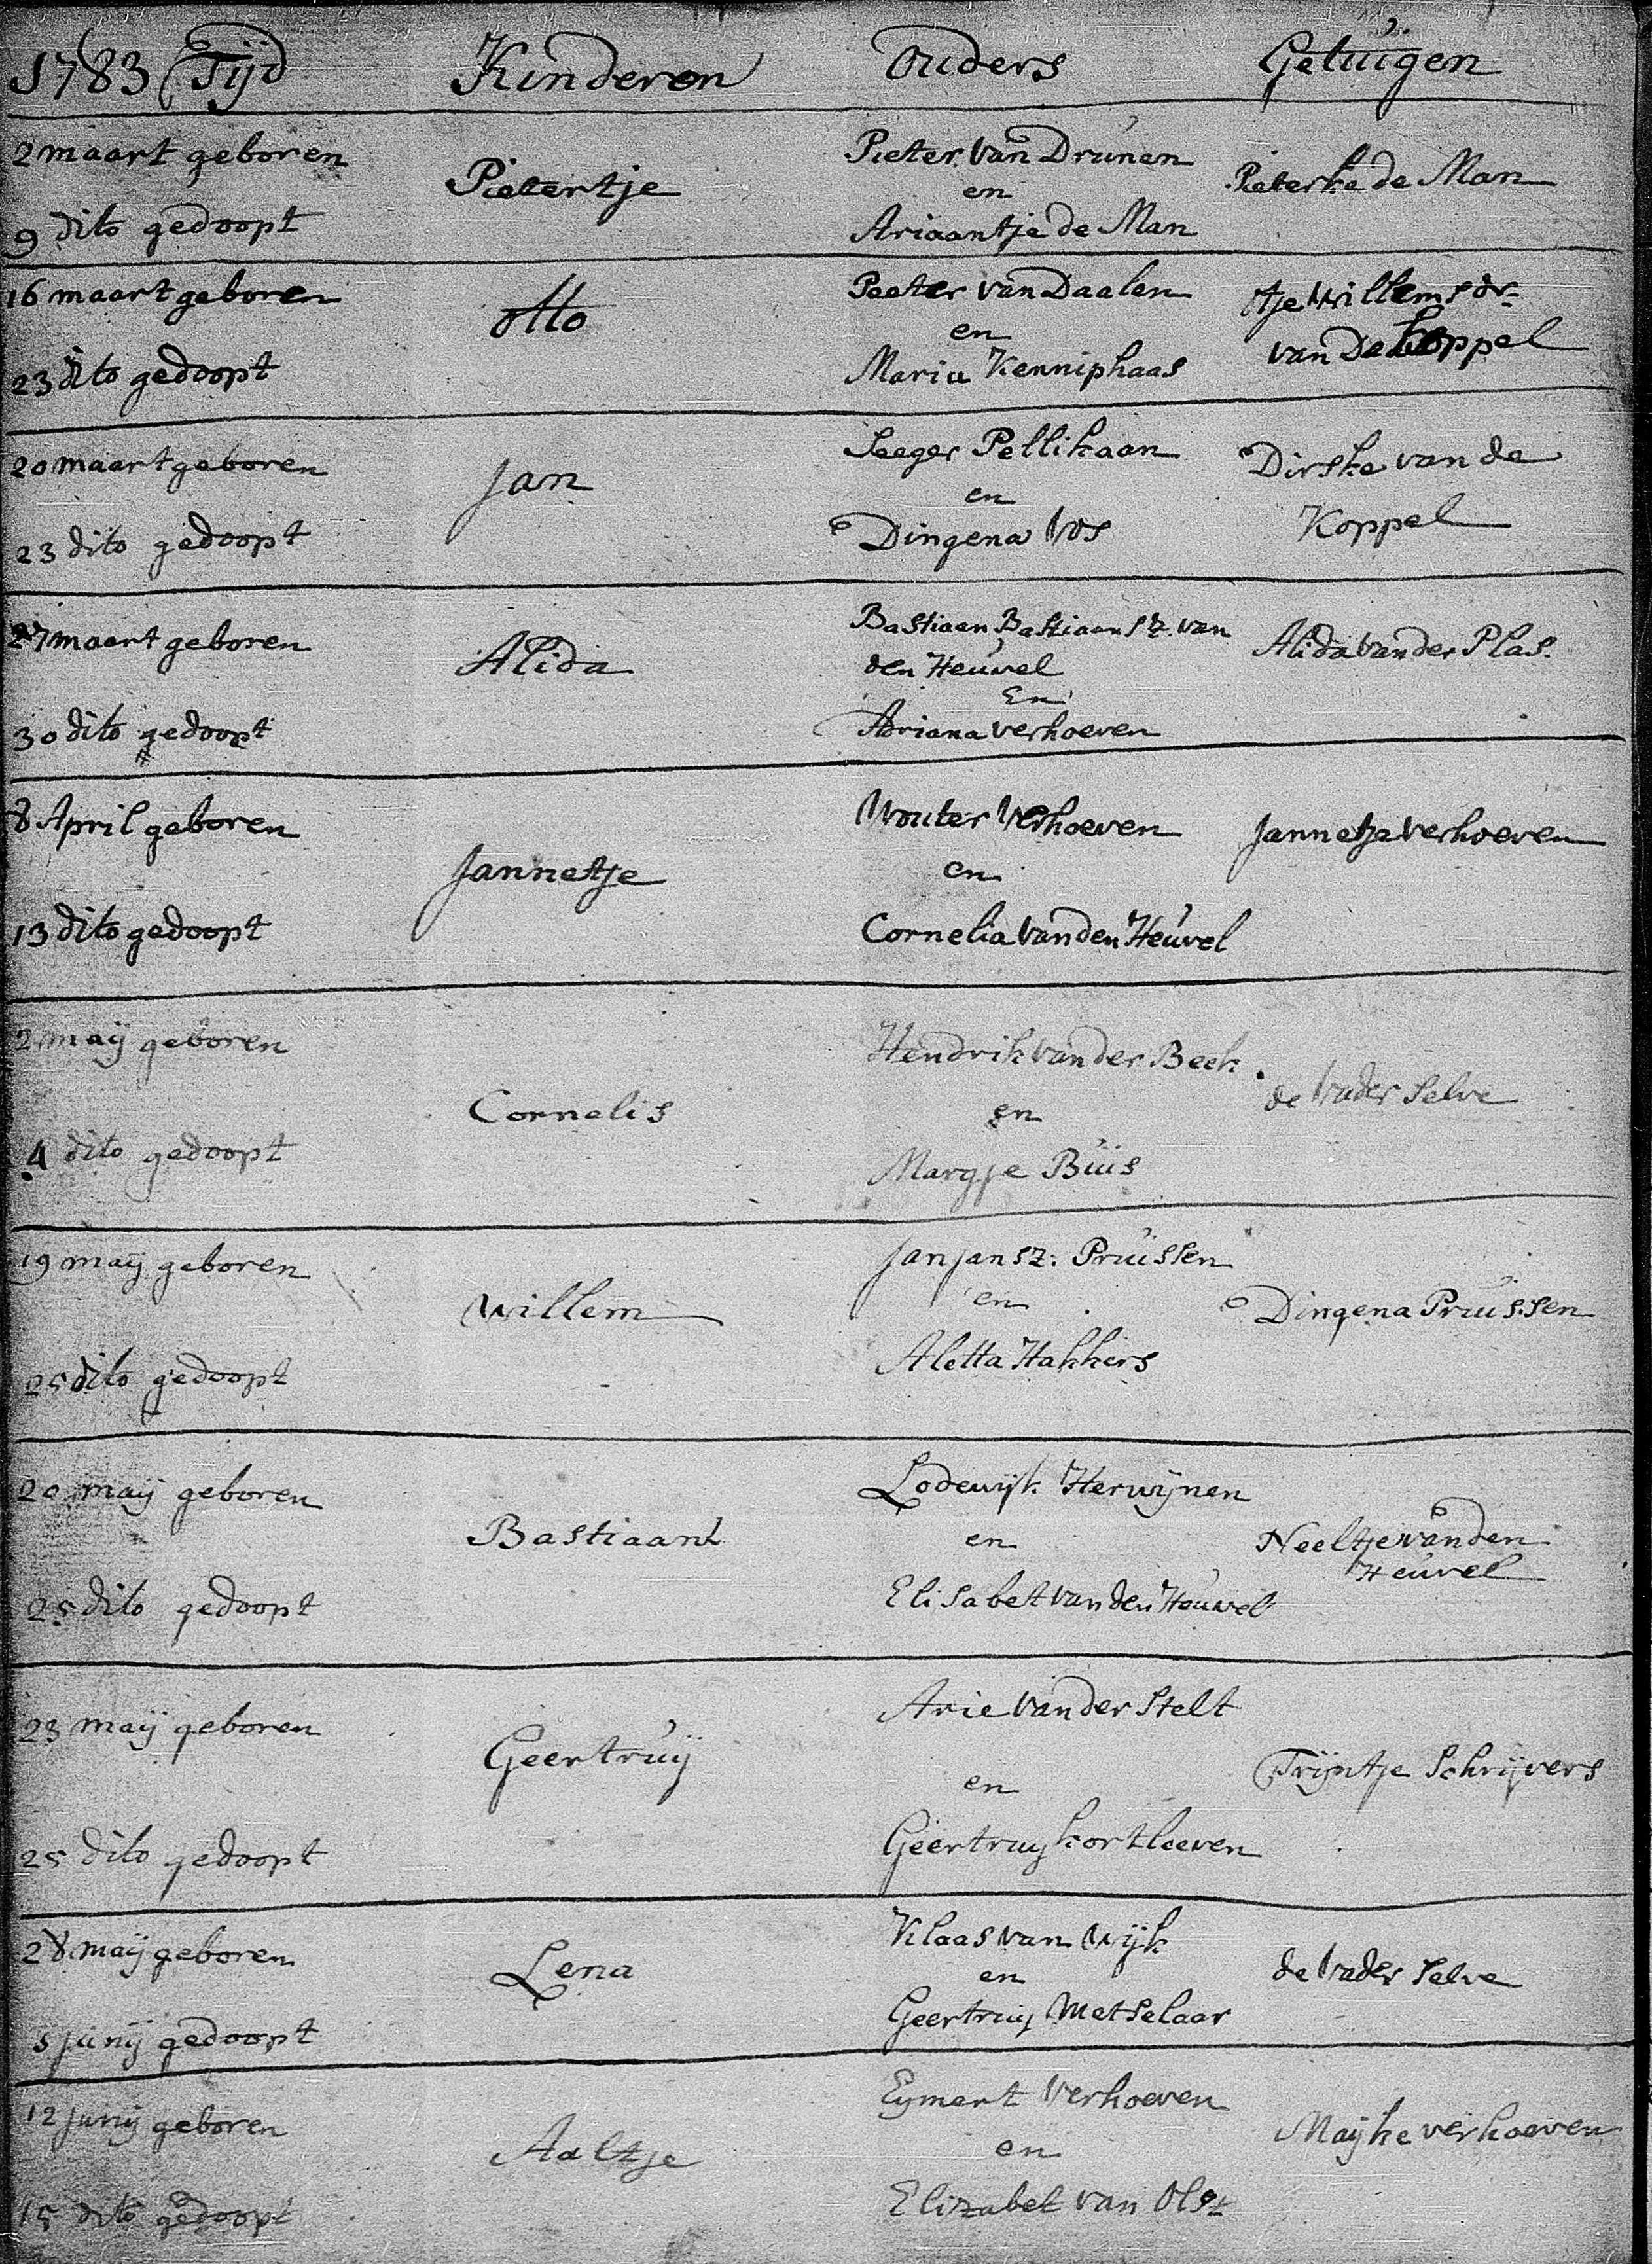 1783 Tijd Kinderen Ouders Getuigen
2 maart geboren
9 dito gedoopt
Pietertje
Pieter van Drunen
en
Ariaantje de Man
Pieterke de Man
16 maart geboren
23 dito gedoopt
Otto
Peeter van Daalen
en
Maria Kenniphaas
Otje Willemsdr
van De Koppel
20 maart geboren
23 dito gedoopt
Jan
Seeger Pellikaan
en
Dingena Vos
Dirske van de
Koppel
27 maart geboren
30 dito gedoopt
Alida
Bastiaan Bastiaansz. van
den Heuvel
En
Adriana verhoeven
Alida van der Plas.
8 April geboren
13 dito gedoopt
Jannetje
Wouter Verhoeven
en
Cornelia van den Heuvel
Jannetje verhoeven
2 maij geboren
4 dito gedoopt
Cornelis
Hendrik van der Beek
en
Margje Buis
de Vader Selve
19 maij geboren
25 dito gedoopt
Willem
Jan Jansz: Pruissen
en
Aletta Hakkers
Dingena Pruissen
20 maij geboren
25 dito gedoopt
Bastiaan
Lodewijk Herwijnen
en
Elisabet van den Heuvel
Neeltje van den
Heuvel
23 maij geboren
25 dito gedoopt
Geertruij
Arie van der Stelt
en
Geertruij kortleeven
Trijntje Schrijvers
28 maij geboren
5 junij gedoopt
Lena
Klaas van Wijk
en
Geertruij Metselaar
de Vader Selve
12 junij geboren
15 dito gedoopt
Aaltje
Eymert Verhoeven
en
Elizabet van Olst
Maijke verhoeven